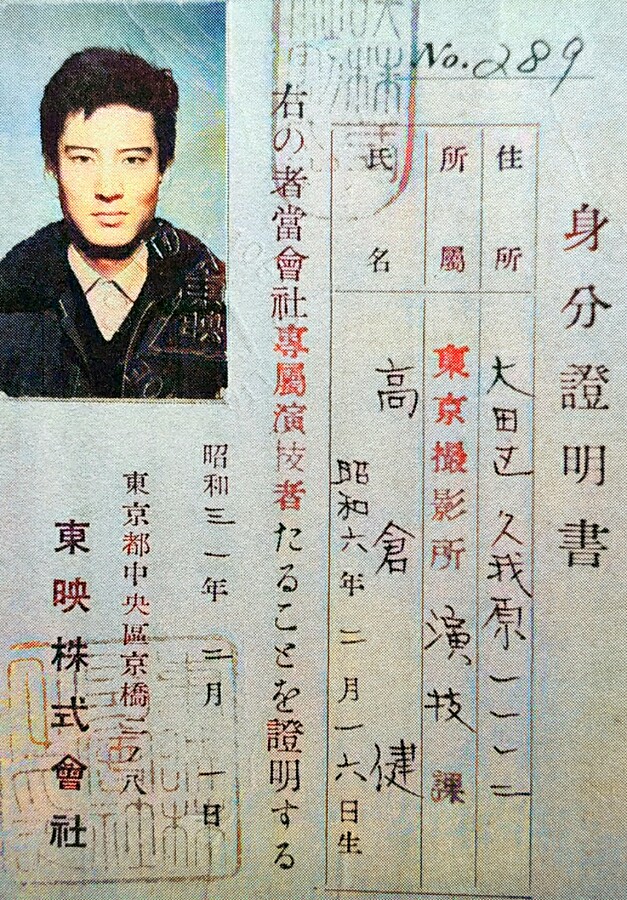 No. 289
身分證明書
住所 大田区久我原一一一二
所屬 東京撮影所演技課
氏名 高倉健
昭和六年二月一六日生
右の者當會社專屬演技者たることを證明する
昭和三一年二月一日
東京都中央區京橋二ノ八
東映株式會社